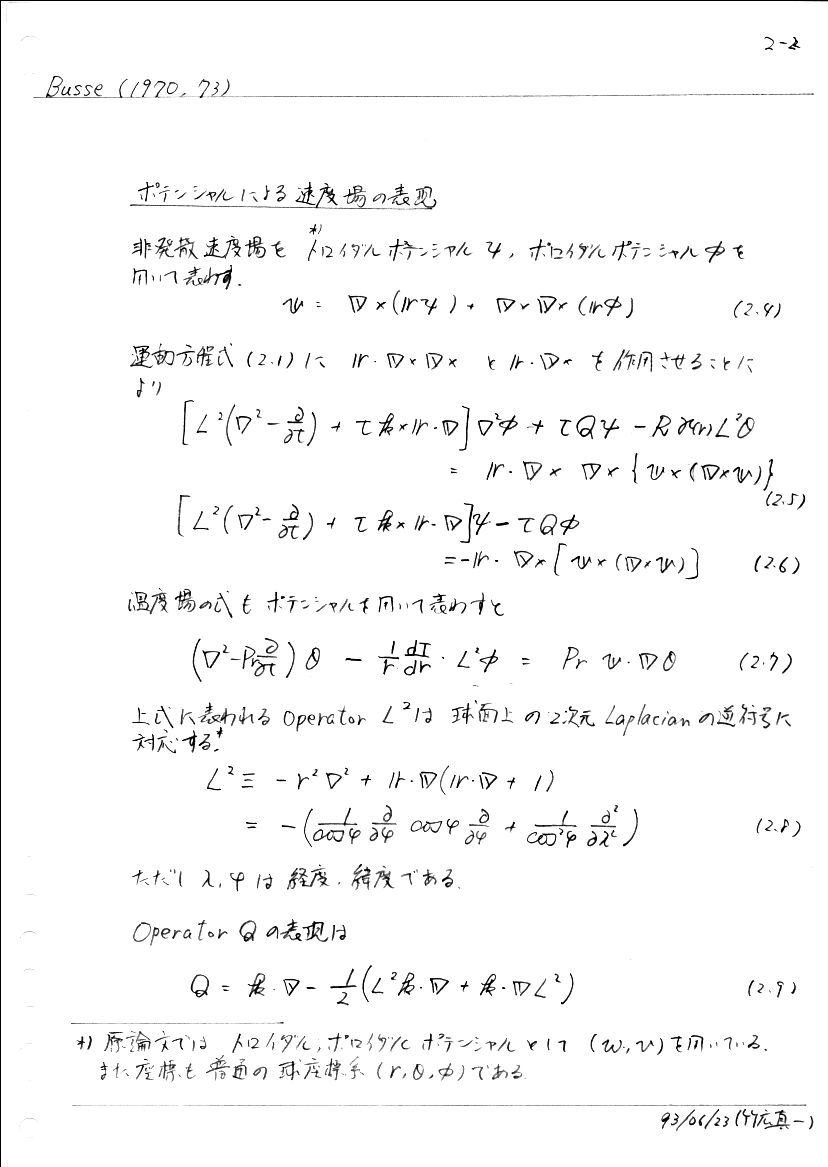 2-2
Busse (1970, 73)
ポテンシャルによる速度場の表現
非発散速度場を トロイダルポテンシャル ψ, ポロイダルポテンシャル φ を
*)
用いて表わす.
𝕧 = ∇×(𝕣ψ) + ∇×∇×(𝕣φ) (2.4)
運動方程式 (2.1) に 𝕣·∇×∇× と 𝕣·∇× を作用させることに
より
[L²(∇² - ∂/∂t) + τ𝕜×𝕣·∇]∇²φ + τQψ - Rγ(r)L²θ
= 𝕣·∇×∇×{𝕧×(∇×𝕧)}
(2.5)
[L²(∇² - ∂/∂t) + τ𝕜×𝕣·∇]ψ - τQφ
= -𝕣·∇×[𝕧×(∇×𝕧)] (2.6)
温度場の式も ポテンシャルを用いて表わすと
(∇² - Pr ∂/∂t)θ - 1/r dT/dr · L²φ = Pr 𝕧·∇θ (2.7)
上式に表われる Operator L² は 球面上の 2次元 Laplacian の逆符号に
対応する.*
L² ≡ -r²∇² + 𝕣·∇(𝕣·∇ + 1)
= -(1/cosφ ∂/∂φ cosφ ∂/∂φ + 1/cos²φ ∂²/∂λ²) (2.8)
ただし λ, φ は 経度, 緯度である.
Operator Q の表現は
Q = 𝕜·∇ - 1/2(L²𝕜·∇ + 𝕜·∇L²) (2.9)
*) 原論文では トロイダル, ポロイダルポテンシャルとして (w, v) を用いている.
また座標も普通の球座標系 (r, θ, φ) である.
93/06/23 (竹広真一)